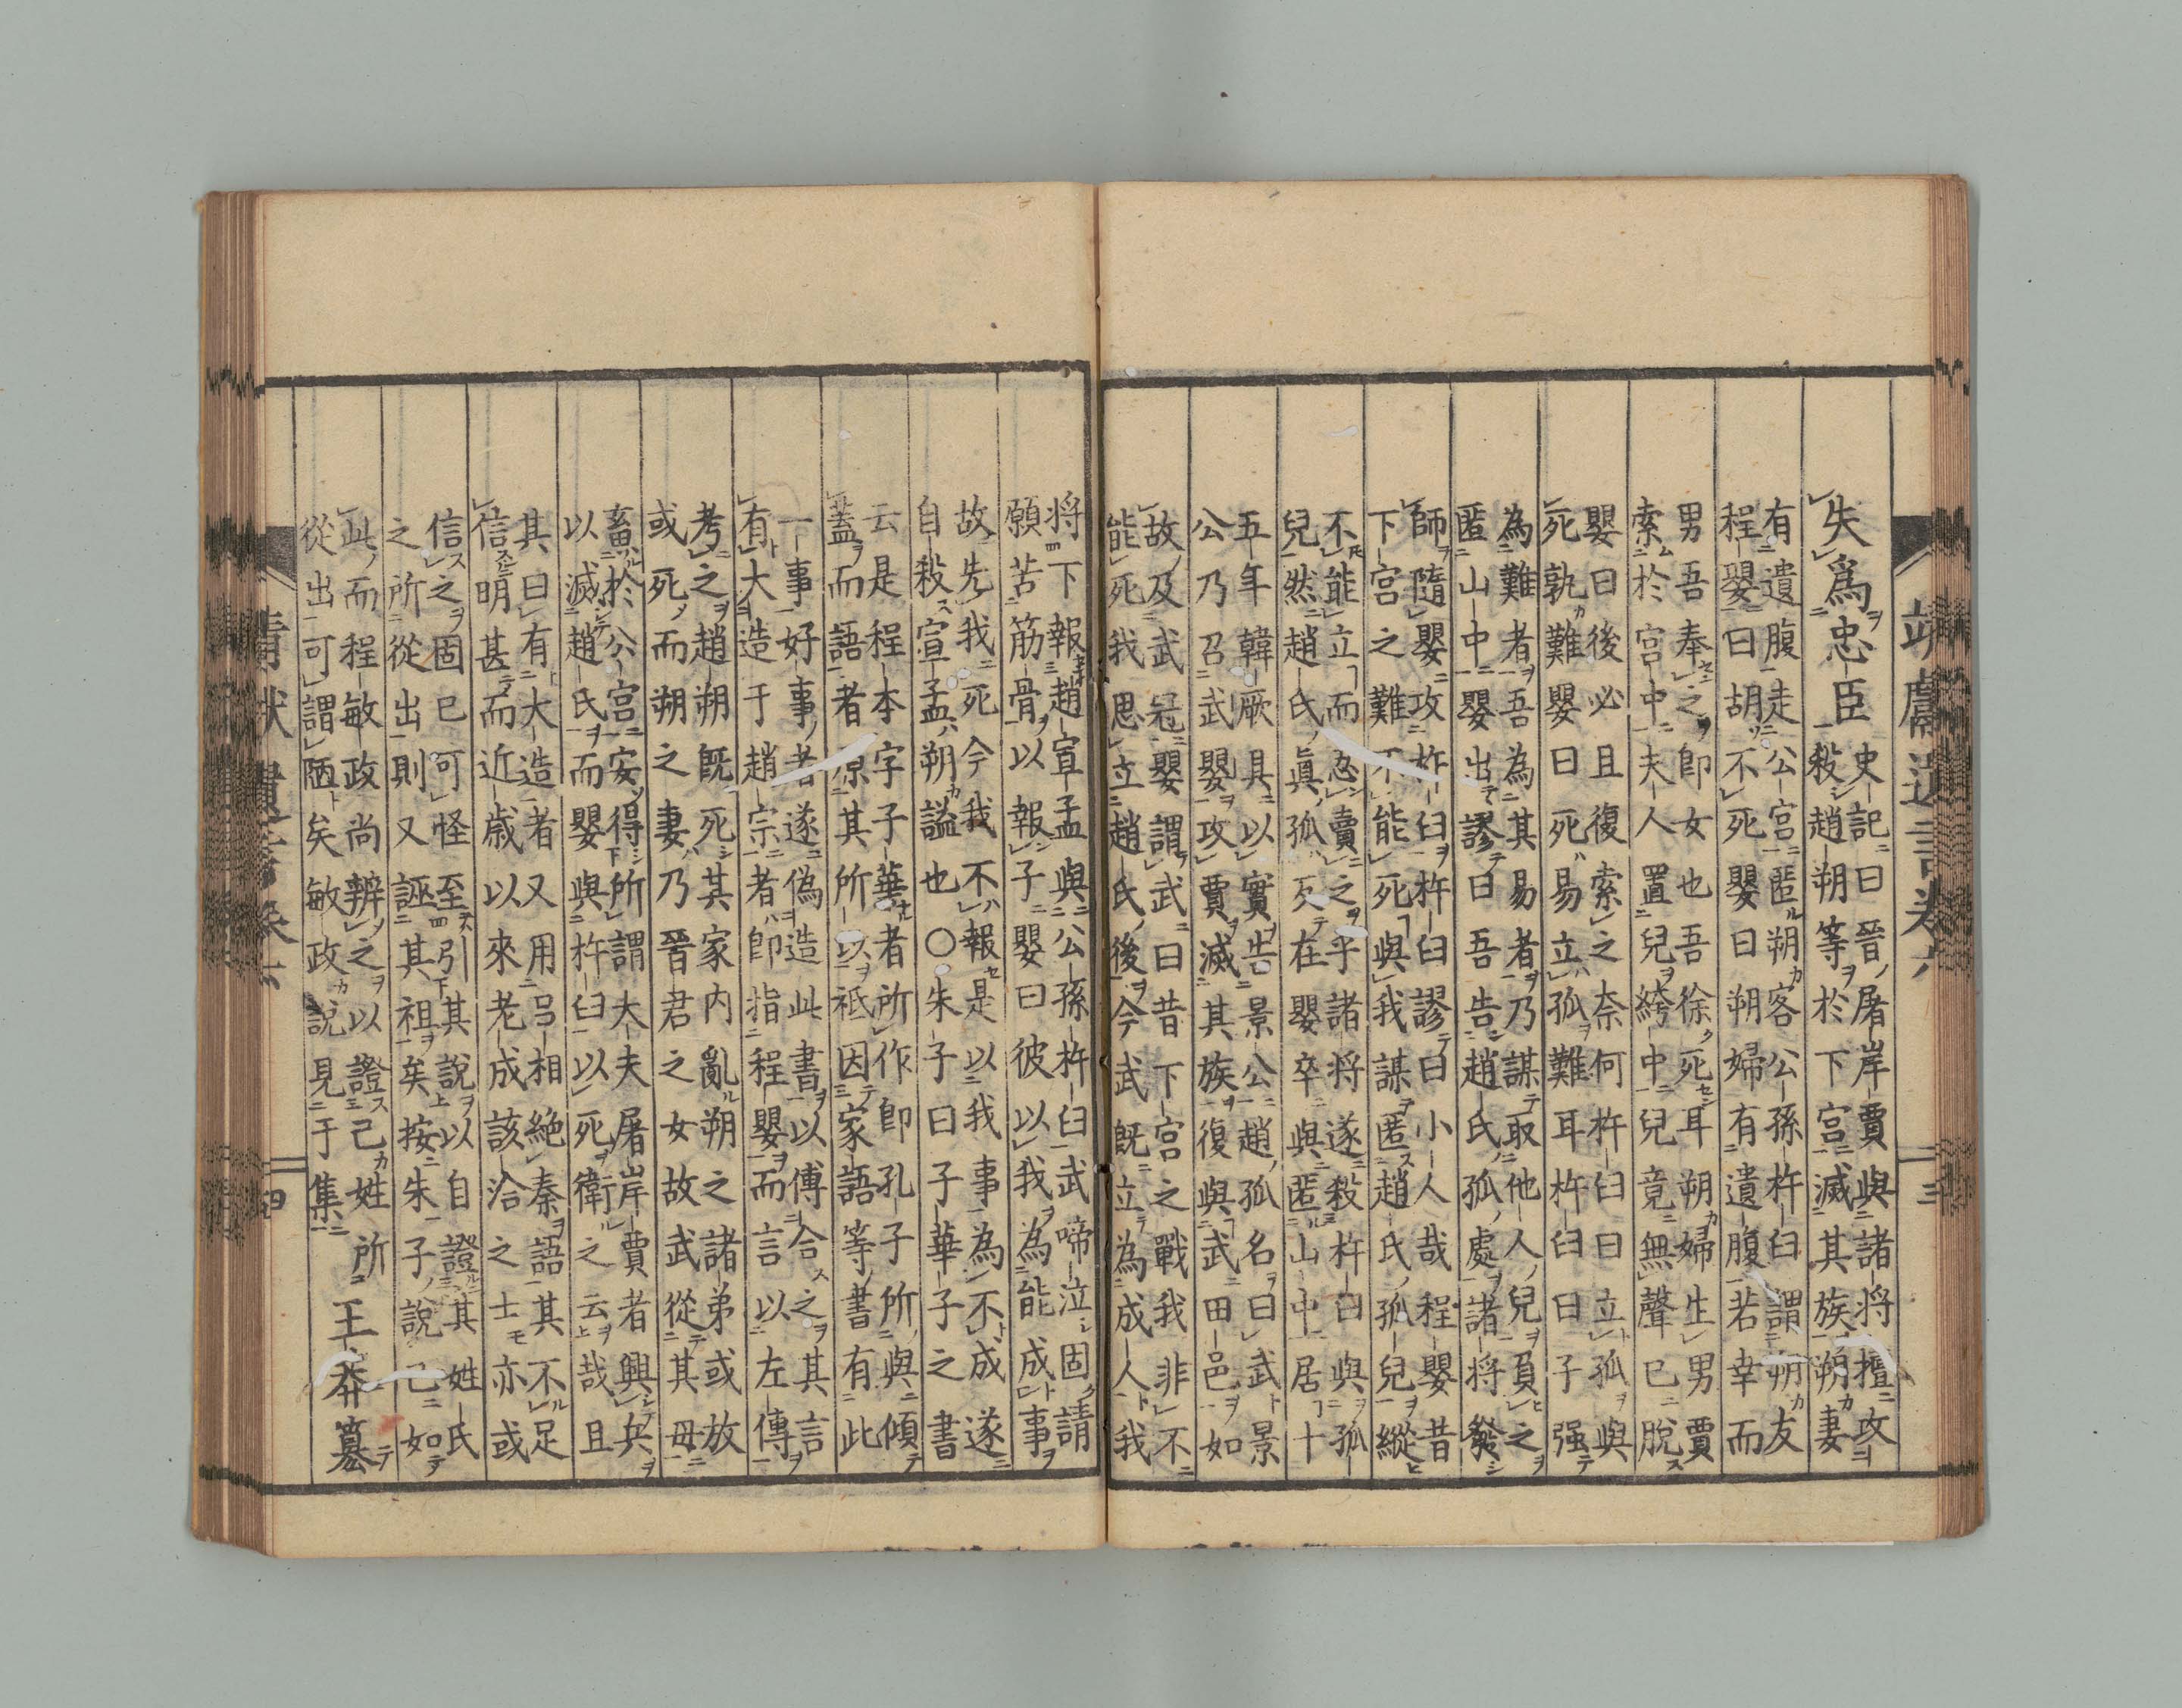 靖獻遺言卷六 三
失爲忠臣
史記曰晉屠岸賈與諸將擅攻
殺趙朔等於下宮滅其族朔妻
有遺腹走公宮匿朔客公孫杵臼謂朔友
程嬰曰胡不死嬰曰朔婦有遺腹若幸而
男吾奉之卽女也吾徐死耳朔婦生男賈
索於宮中夫人置兒絝中兒竟無聲已脫
嬰曰後必且復索之奈何杵臼曰立孤與
死孰難嬰曰死易立孤難耳杵臼曰子强
為難者吾為其易者乃謀取他人兒負之
匿山中嬰出謬曰吾告趙氏孤處諸將發
師隨嬰攻杵臼杵臼謬曰小人哉程嬰昔
下宮之難不能死與我謀匿趙氏孤兒縱
不能立而忍賣之乎諸將遂殺杵臼與孤
兒然趙氏眞孤反在嬰卒與匿山中居十
五年韓厥具以實告景公趙孤名曰武景
公乃召武嬰攻賈滅其族復與武田邑如
故及武冠嬰謂武曰昔下宮之戰我非不
能死我思立趙氏後今武既立為成人我
將下報趙宣孟與公孫杵臼武啼泣固請
願苦筋骨以報子嬰曰彼以我為能成事
故先我死今我不報是以我事為不成遂
自殺宣孟朔謚也○朱子曰子華子之書
云是程本字子華者所作卽孔子所與傾
蓋而語者原其所以祗因家語等書有此
一事好事者遂偽造此書以傅合之其言
有大造于趙宗者卽指程嬰而言以左傳
考之趙朔既死其家内亂朔之諸弟或放
或死而朔之妻乃晉君之女故武從其母
畜於公宮安得所謂大夫屠岸賈者興兵
以滅趙氏而嬰與杵臼以死衛之云哉且
其曰有大造者又用呂相絶秦語其不足
信明甚而近歲以來老成該洽之士亦或
信之固已可怪至引其說以自證其姓氏
之所從出則又誣其祖矣按朱子說已如
此而程敏政尚辨之以證己姓所
從出可謂陋矣敏政說見于集
王莽簒
靖獻遺言卷六 四